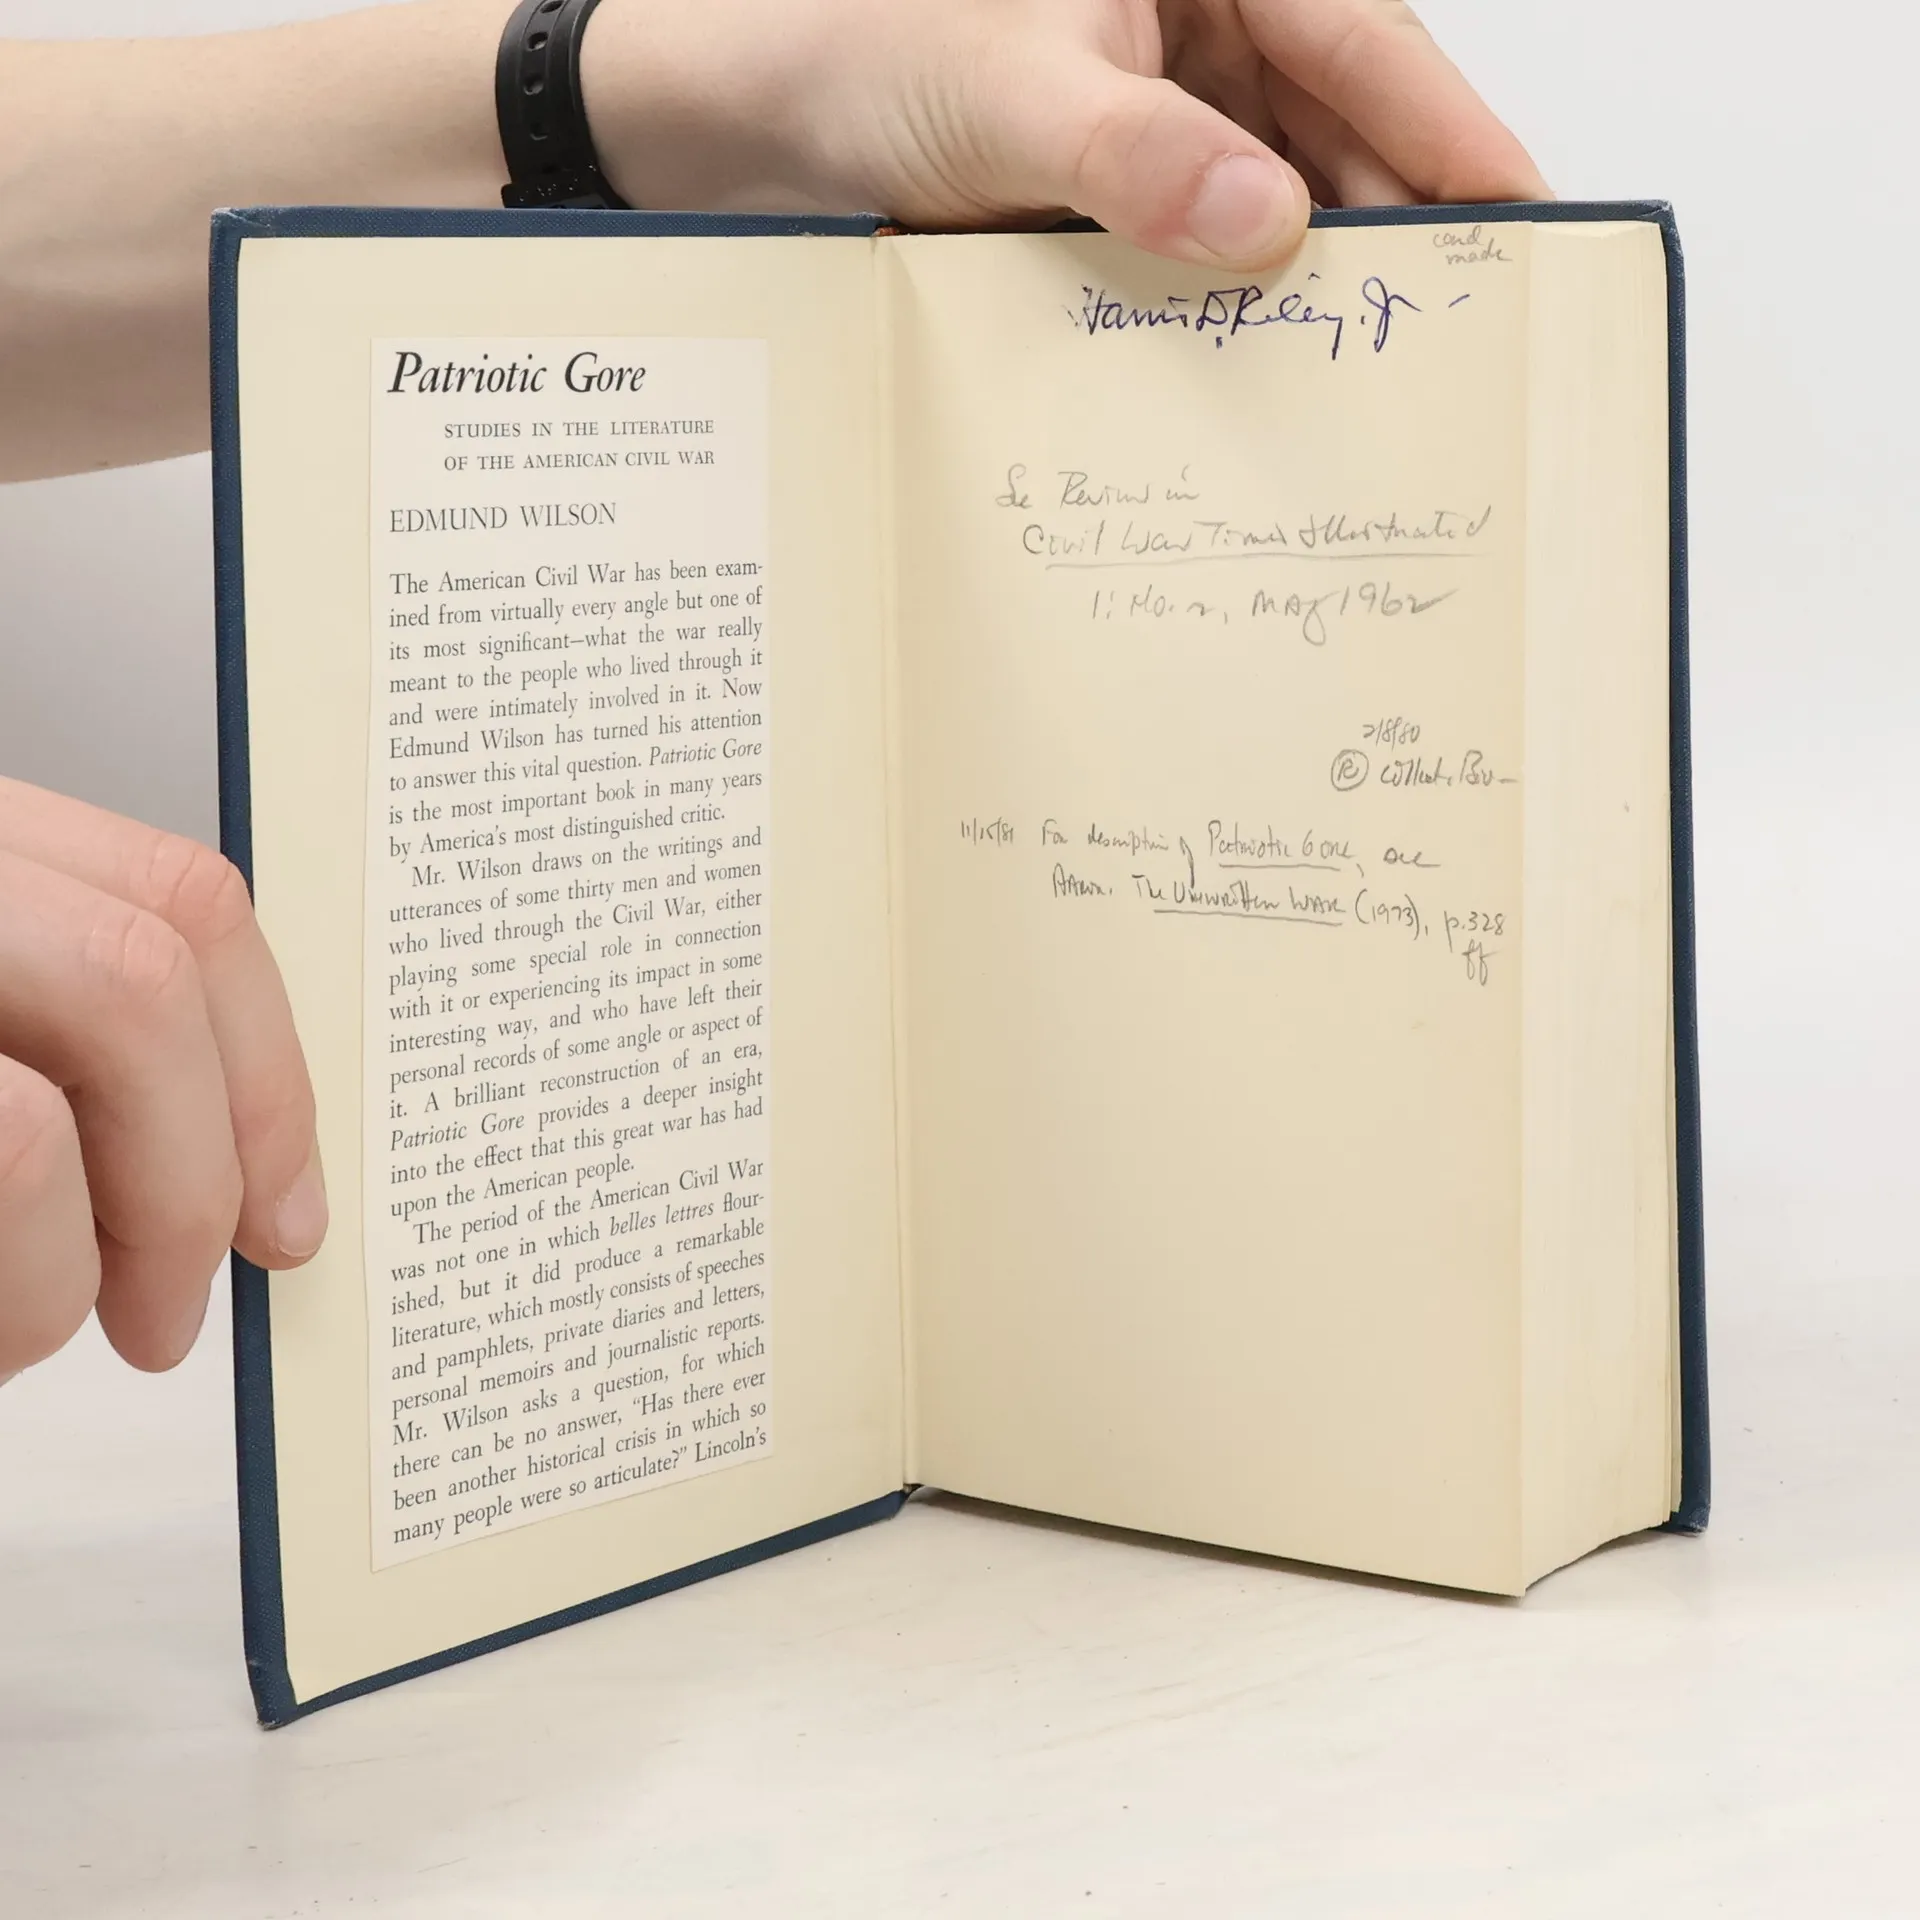 Patriotic Gore
STUDIES IN THE LITERATURE
OF THE AMERICAN CIVIL WAR
EDMUND WILSON
The American Civil War has been exam-
ined from virtually every angle but one of
its most significant—what the war really
meant to the people who lived through it
and were intimately involved in it. Now
Edmund Wilson has turned his attention
to answer this vital question. Patriotic Gore
is the most important book in many years
by America's most distinguished critic.
Mr. Wilson draws on the writings and
utterances of some thirty men and women
who lived through the Civil War, either
playing some special role in connection
with it or experiencing its impact in some
interesting way, and who have left their
personal records of some angle or aspect of
it. A brilliant reconstruction of an era,
Patriotic Gore provides a deeper insight
into the effect that this great war has had
upon the American people.
The period of the American Civil War
was not one in which belles lettres flour-
ished, but it did produce a remarkable
literature, which mostly consists of speeches
and pamphlets, private diaries and letters,
personal memoirs and journalistic reports.
Mr. Wilson asks a question, for which
there can be no answer, “Has there ever
been another historical crisis in which so
many people were so articulate?” Lincoln's
card
made
Harris D. Riley, Jr
See Review in
Civil War Times Illustrated
1: No. 2, May 1962
2/8/80
R
11/15/81 For description of Patriotic Gore, see
Aaron. The Unwritten War (1973), p.328
ff